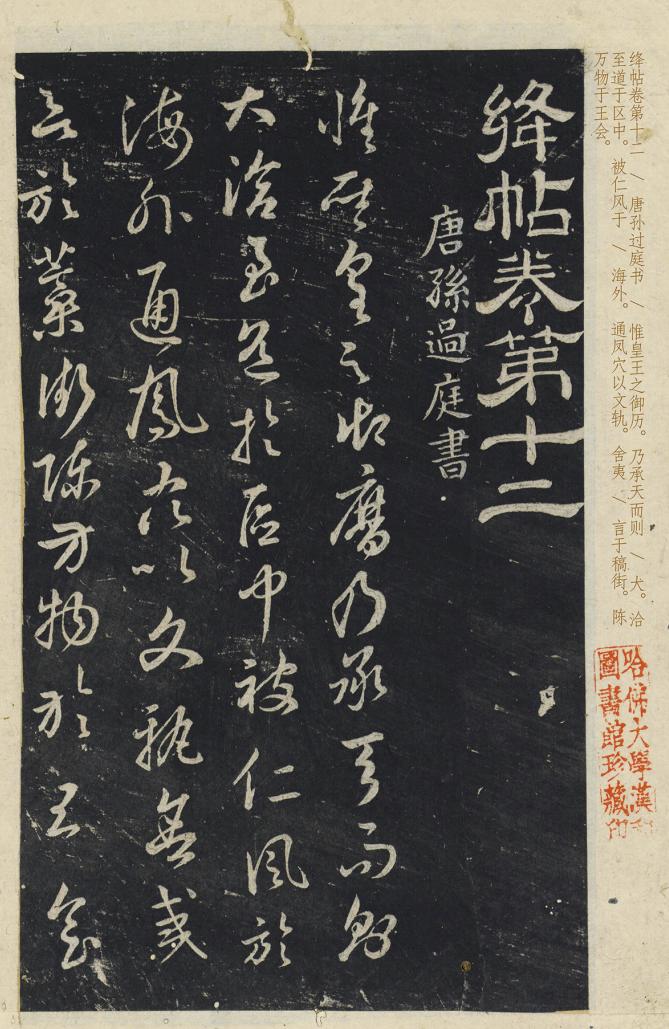 绛帖卷第十二 / 唐孙过庭书 / 惟皇王之御历。乃承天而则 / 犬。洽
至道于区中。被仁风于 / 海外。通凤穴以文轨。舍夷 / 言于稿街。陈
万物于王会。
哈佛大學漢和
圖書館珍藏印
絳帖卷第十二
唐孫過庭書
惟皇之御曆乃承天而則
大洽至道於區中被仁風於
海外通鳳穴以文軌舍夷
言於藁街陳方物於王會